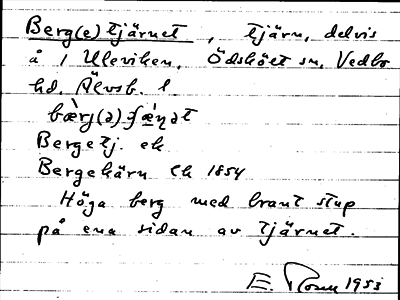 Berg(e)tjärnet, tjärn, delvis
å / Uleviken, Ödskölt sn, Vedbo
hd, Älvsb. l.
bærj(ə)
Bergetj. ek
Bergekärn Ek 1854
Höga berg med brant stup
på ena sidan av tjärnet.
E. Rosen 1953